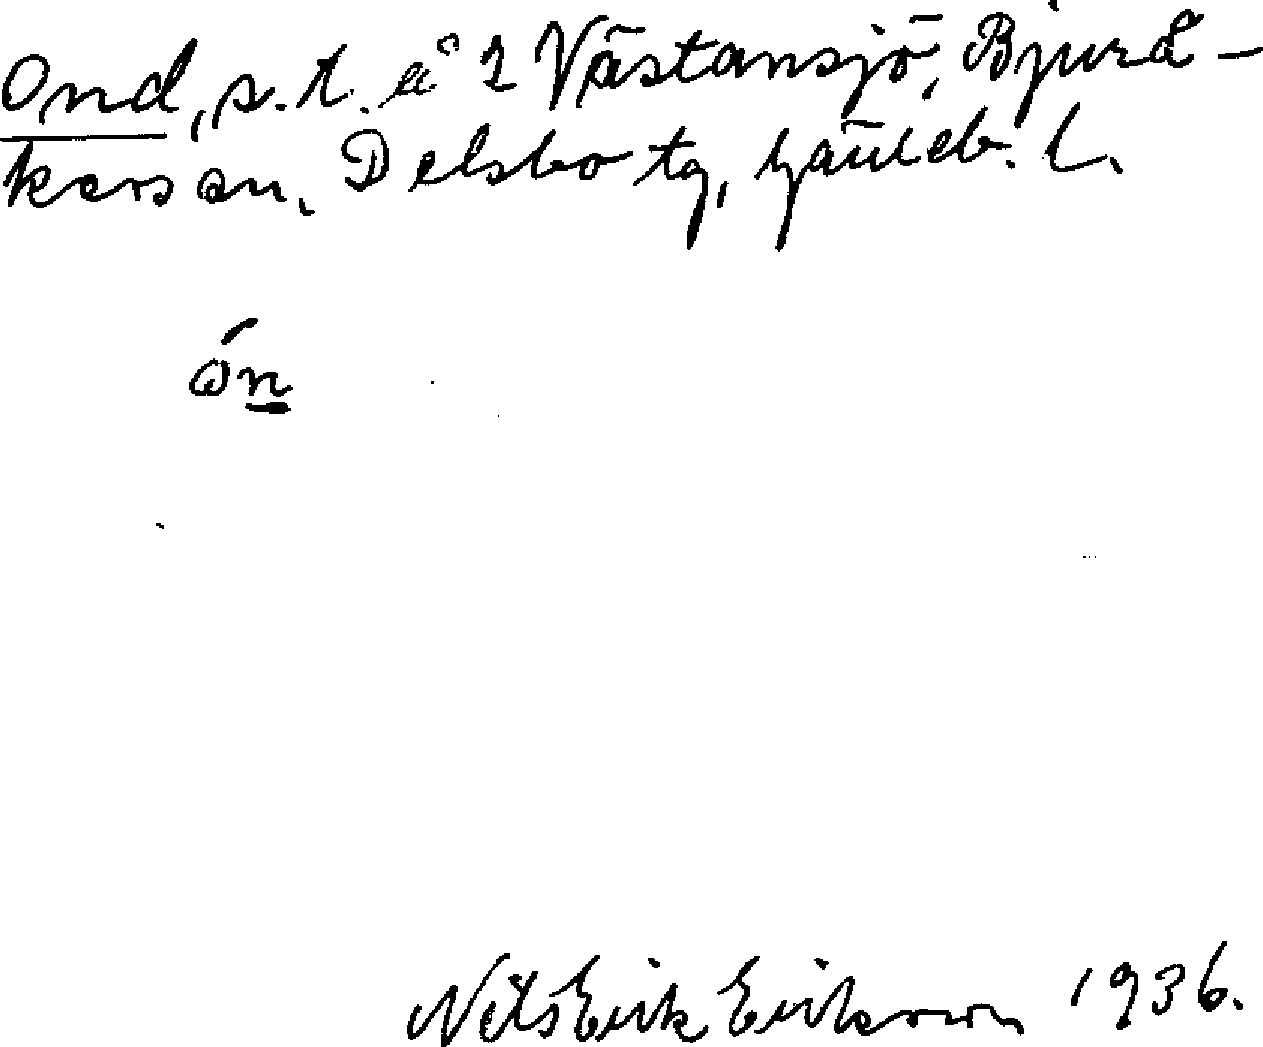 Ond, s.t. å 2 Västansjö, Bjurå-
kers sn. Delsbo tg, Gävleb. l.
ón
Nils Erik Eriksson 1936.